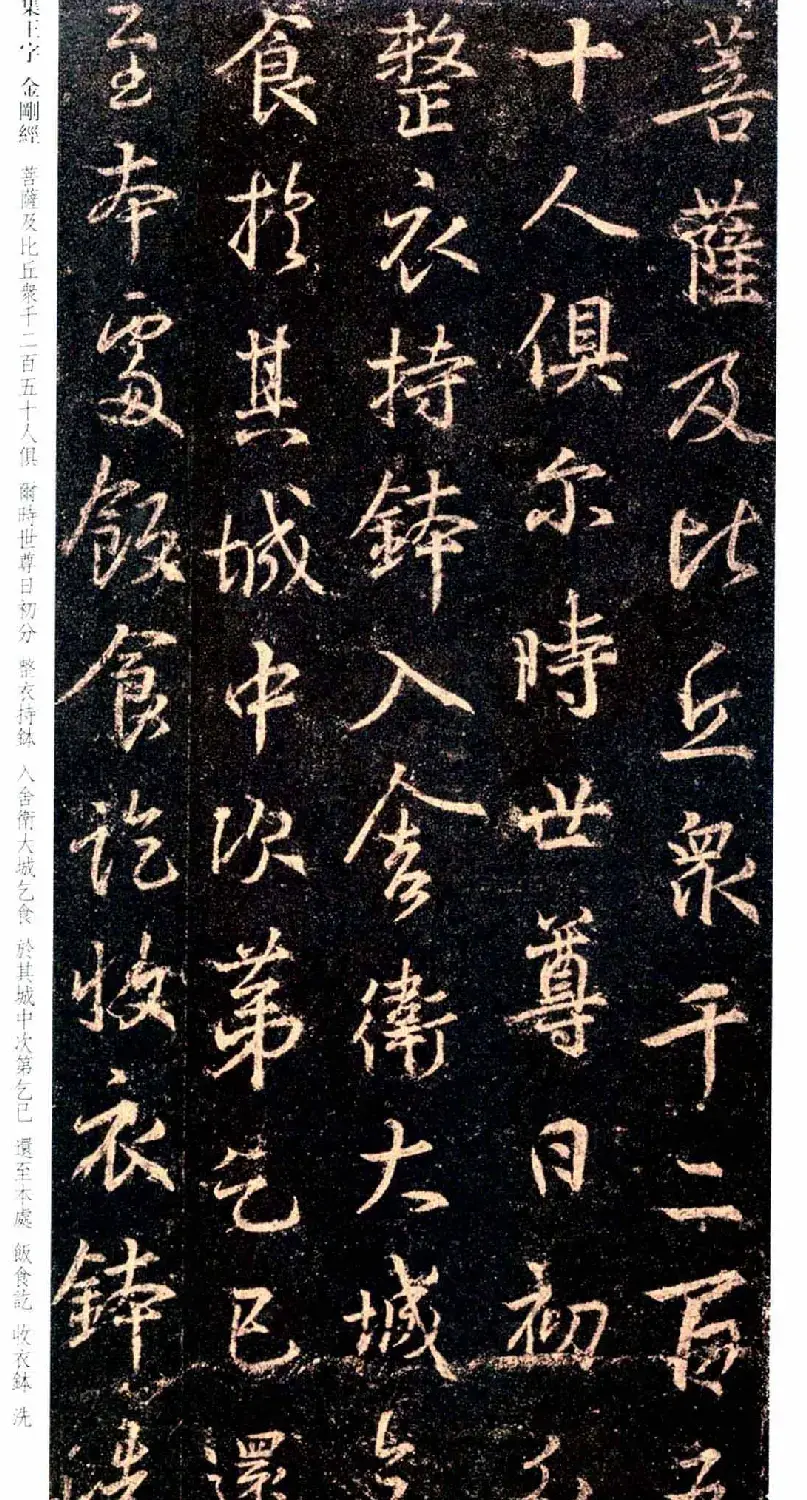 菩薩及比丘衆千二百五
十人俱尔時世尊日初分
整衣持鉢入舍衛大城乞
食於其城中次第乞已還
至本處飯食訖收衣鉢洗
集王字 金剛經 菩薩及比丘衆千二百五十人俱 爾時世尊日初分 整衣持鉢 入舍衛大城乞食 於其城中次第乞已 還至本處 飯食訖 收衣鉢 洗